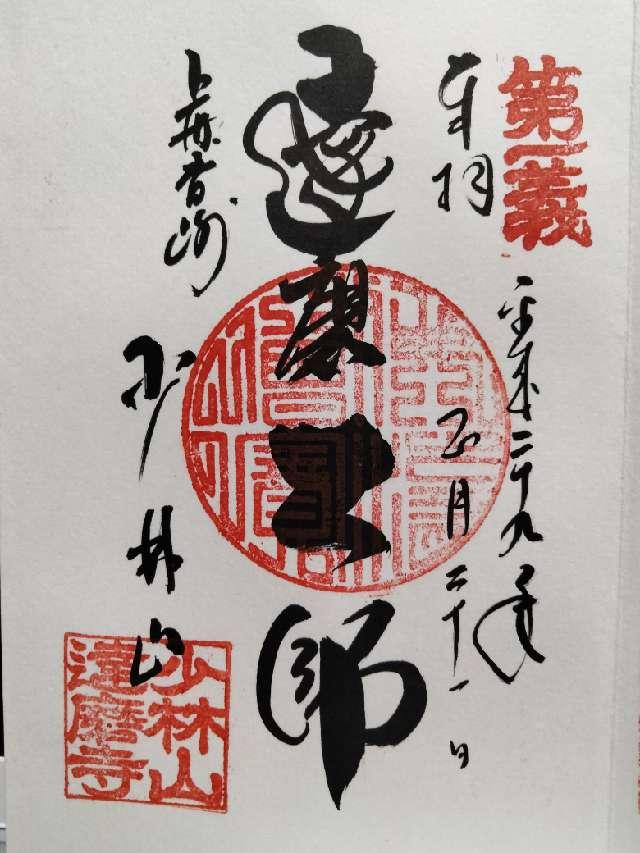 第一義
奉拝
平成二十九年
正月二十一日
達磨大師
上毛
少林山
少林山
達磨寺